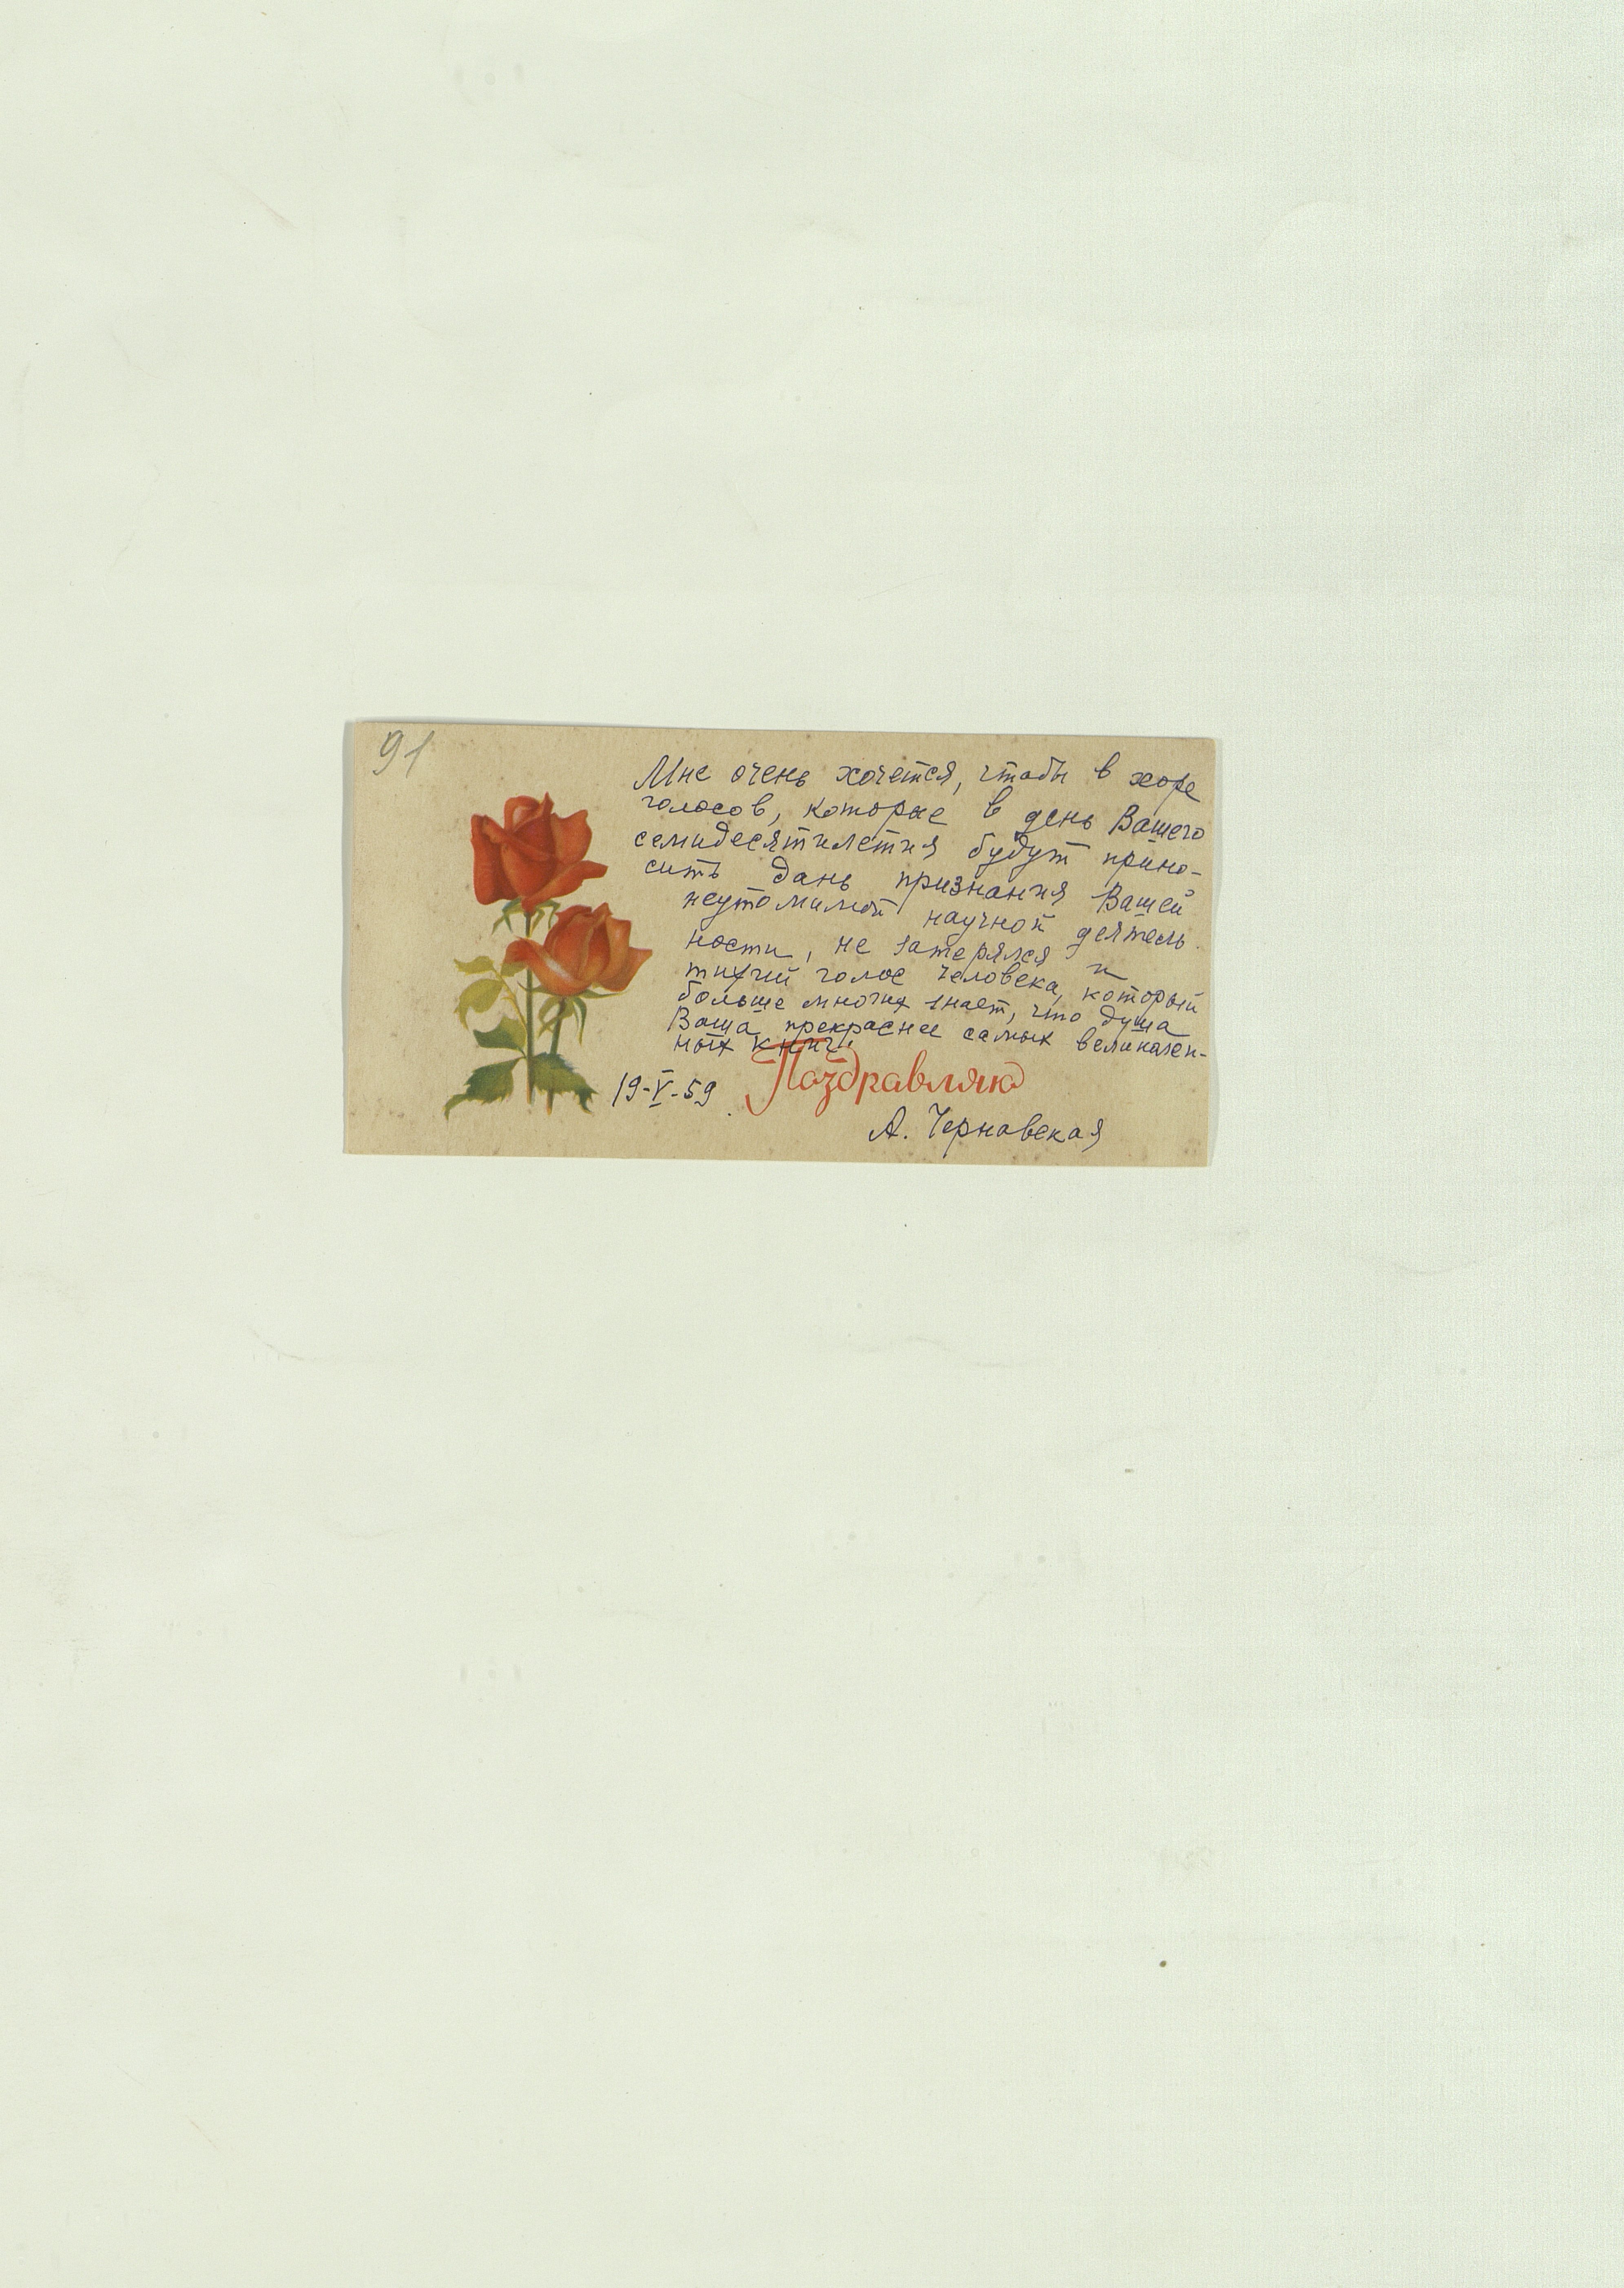 91
Мне очень хочется, чтобы в хоре
голосов, которые в день Вашего
семидесятилетия будут прино-
сить дань признания Вашей
неутомимой научной деятель-
ности, не затерялся и
тихий голос человека, который
больше многих знает, что душа
Ваша прекраснее самых великолеп-
ных книг.
19-V-59 Поздравляю
А. Чернавская